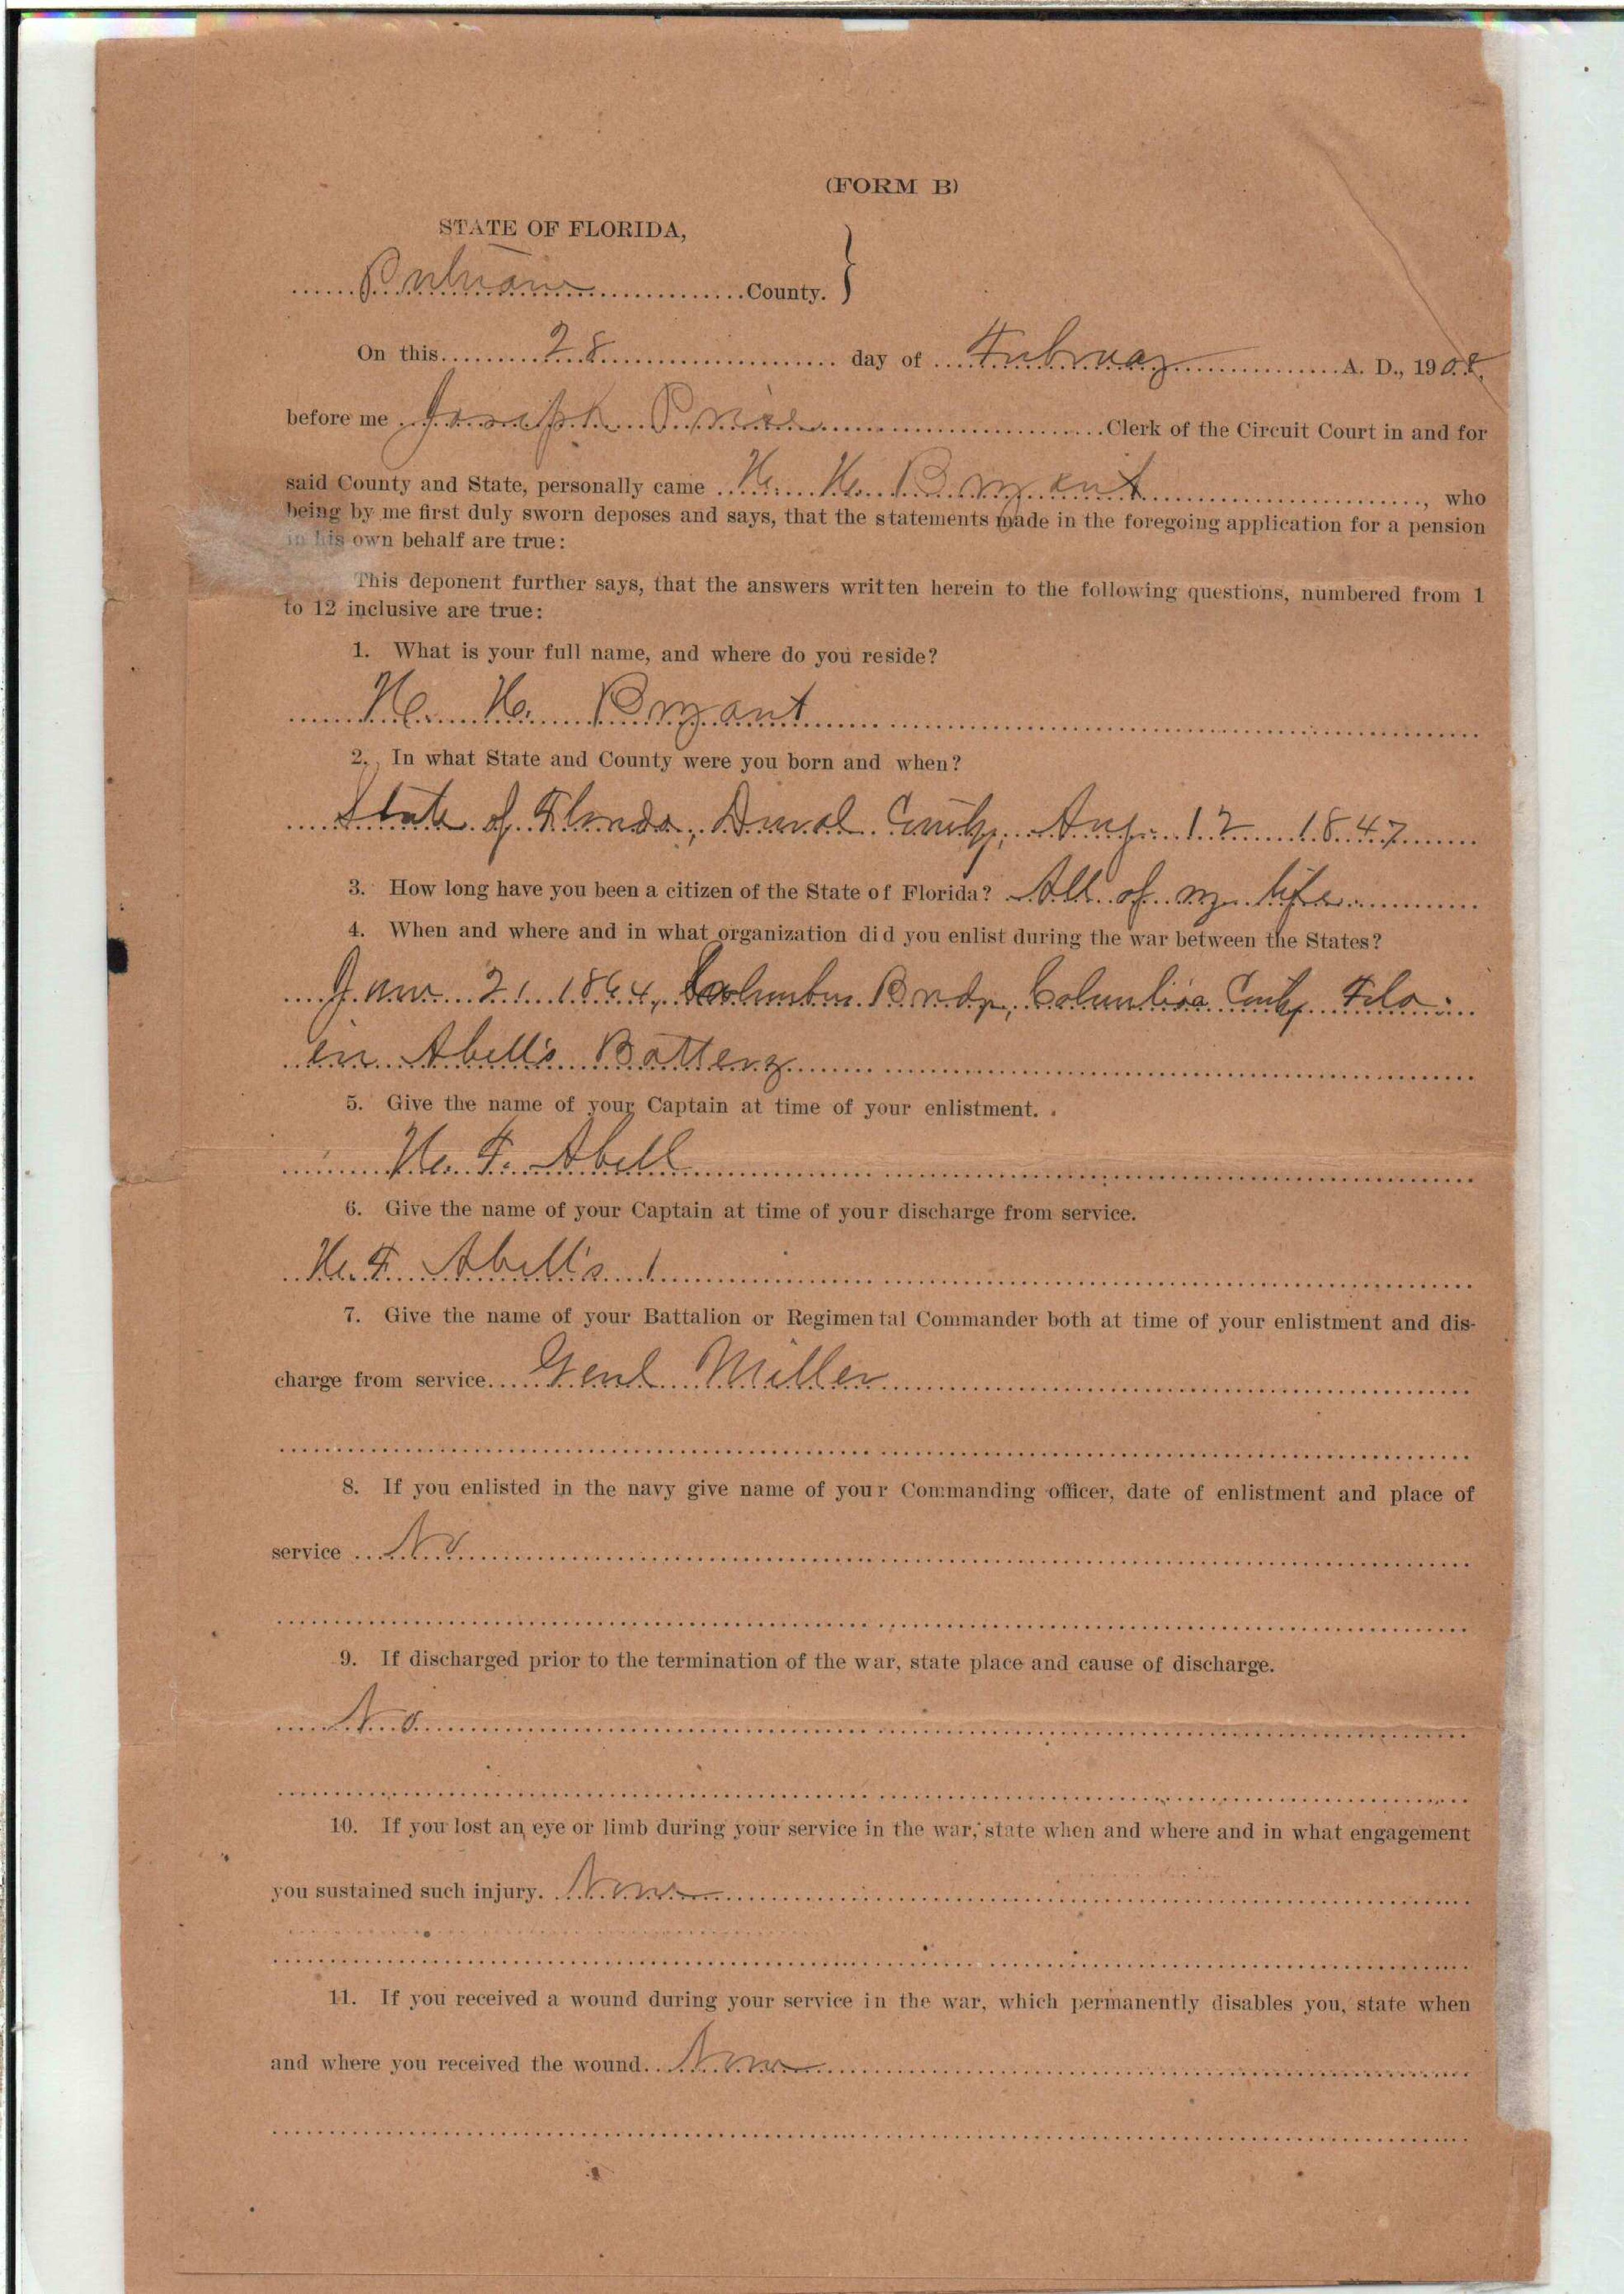 (FORM B)
STATE OF FLORIDA,
Putnam County.
On this 28 day of February A. D., 1908.
before me Joseph Price Clerk of the Circuit Court in and for
said County and State, personally came H. H. Bryant, who
being by me first duly sworn deposes and says, that the statements made in the foregoing application for a pension
in his own behalf are true:
This deponent further says, that the answers written herein to the following questions, numbered from 1
to 12 inclusive are true:
1. What is your full name, and where do you reside?
H. H. Bryant
2. In what State and County were you born and when?
State of Florida, Duval County, Aug. 12 1847
3. How long have you been a citizen of the State of Florida? All of my life
4. When and where and in what organization did you enlist during the war between the States?
Jan 21 1864, Columbus Bridge, Columbia County Fla.
in Abell's Battery
5. Give the name of your Captain at time of your enlistment.
H. F. Abell
6. Give the name of your Captain at time of your discharge from service.
H. F. Abell's
7. Give the name of your Battalion or Regimental Commander both at time of your enlistment and dis-
charge from service. Genl Miller
8. If you enlisted in the navy give name of your Commanding officer, date of enlistment and place of
service No
9. If discharged prior to the termination of the war, state place and cause of discharge.
No
10. If you lost an eye or limb during your service in the war, state when and where and in what engagement
you sustained such injury. None
11. If you received a wound during your service in the war, which permanently disables you, state when
and where you received the wound. None